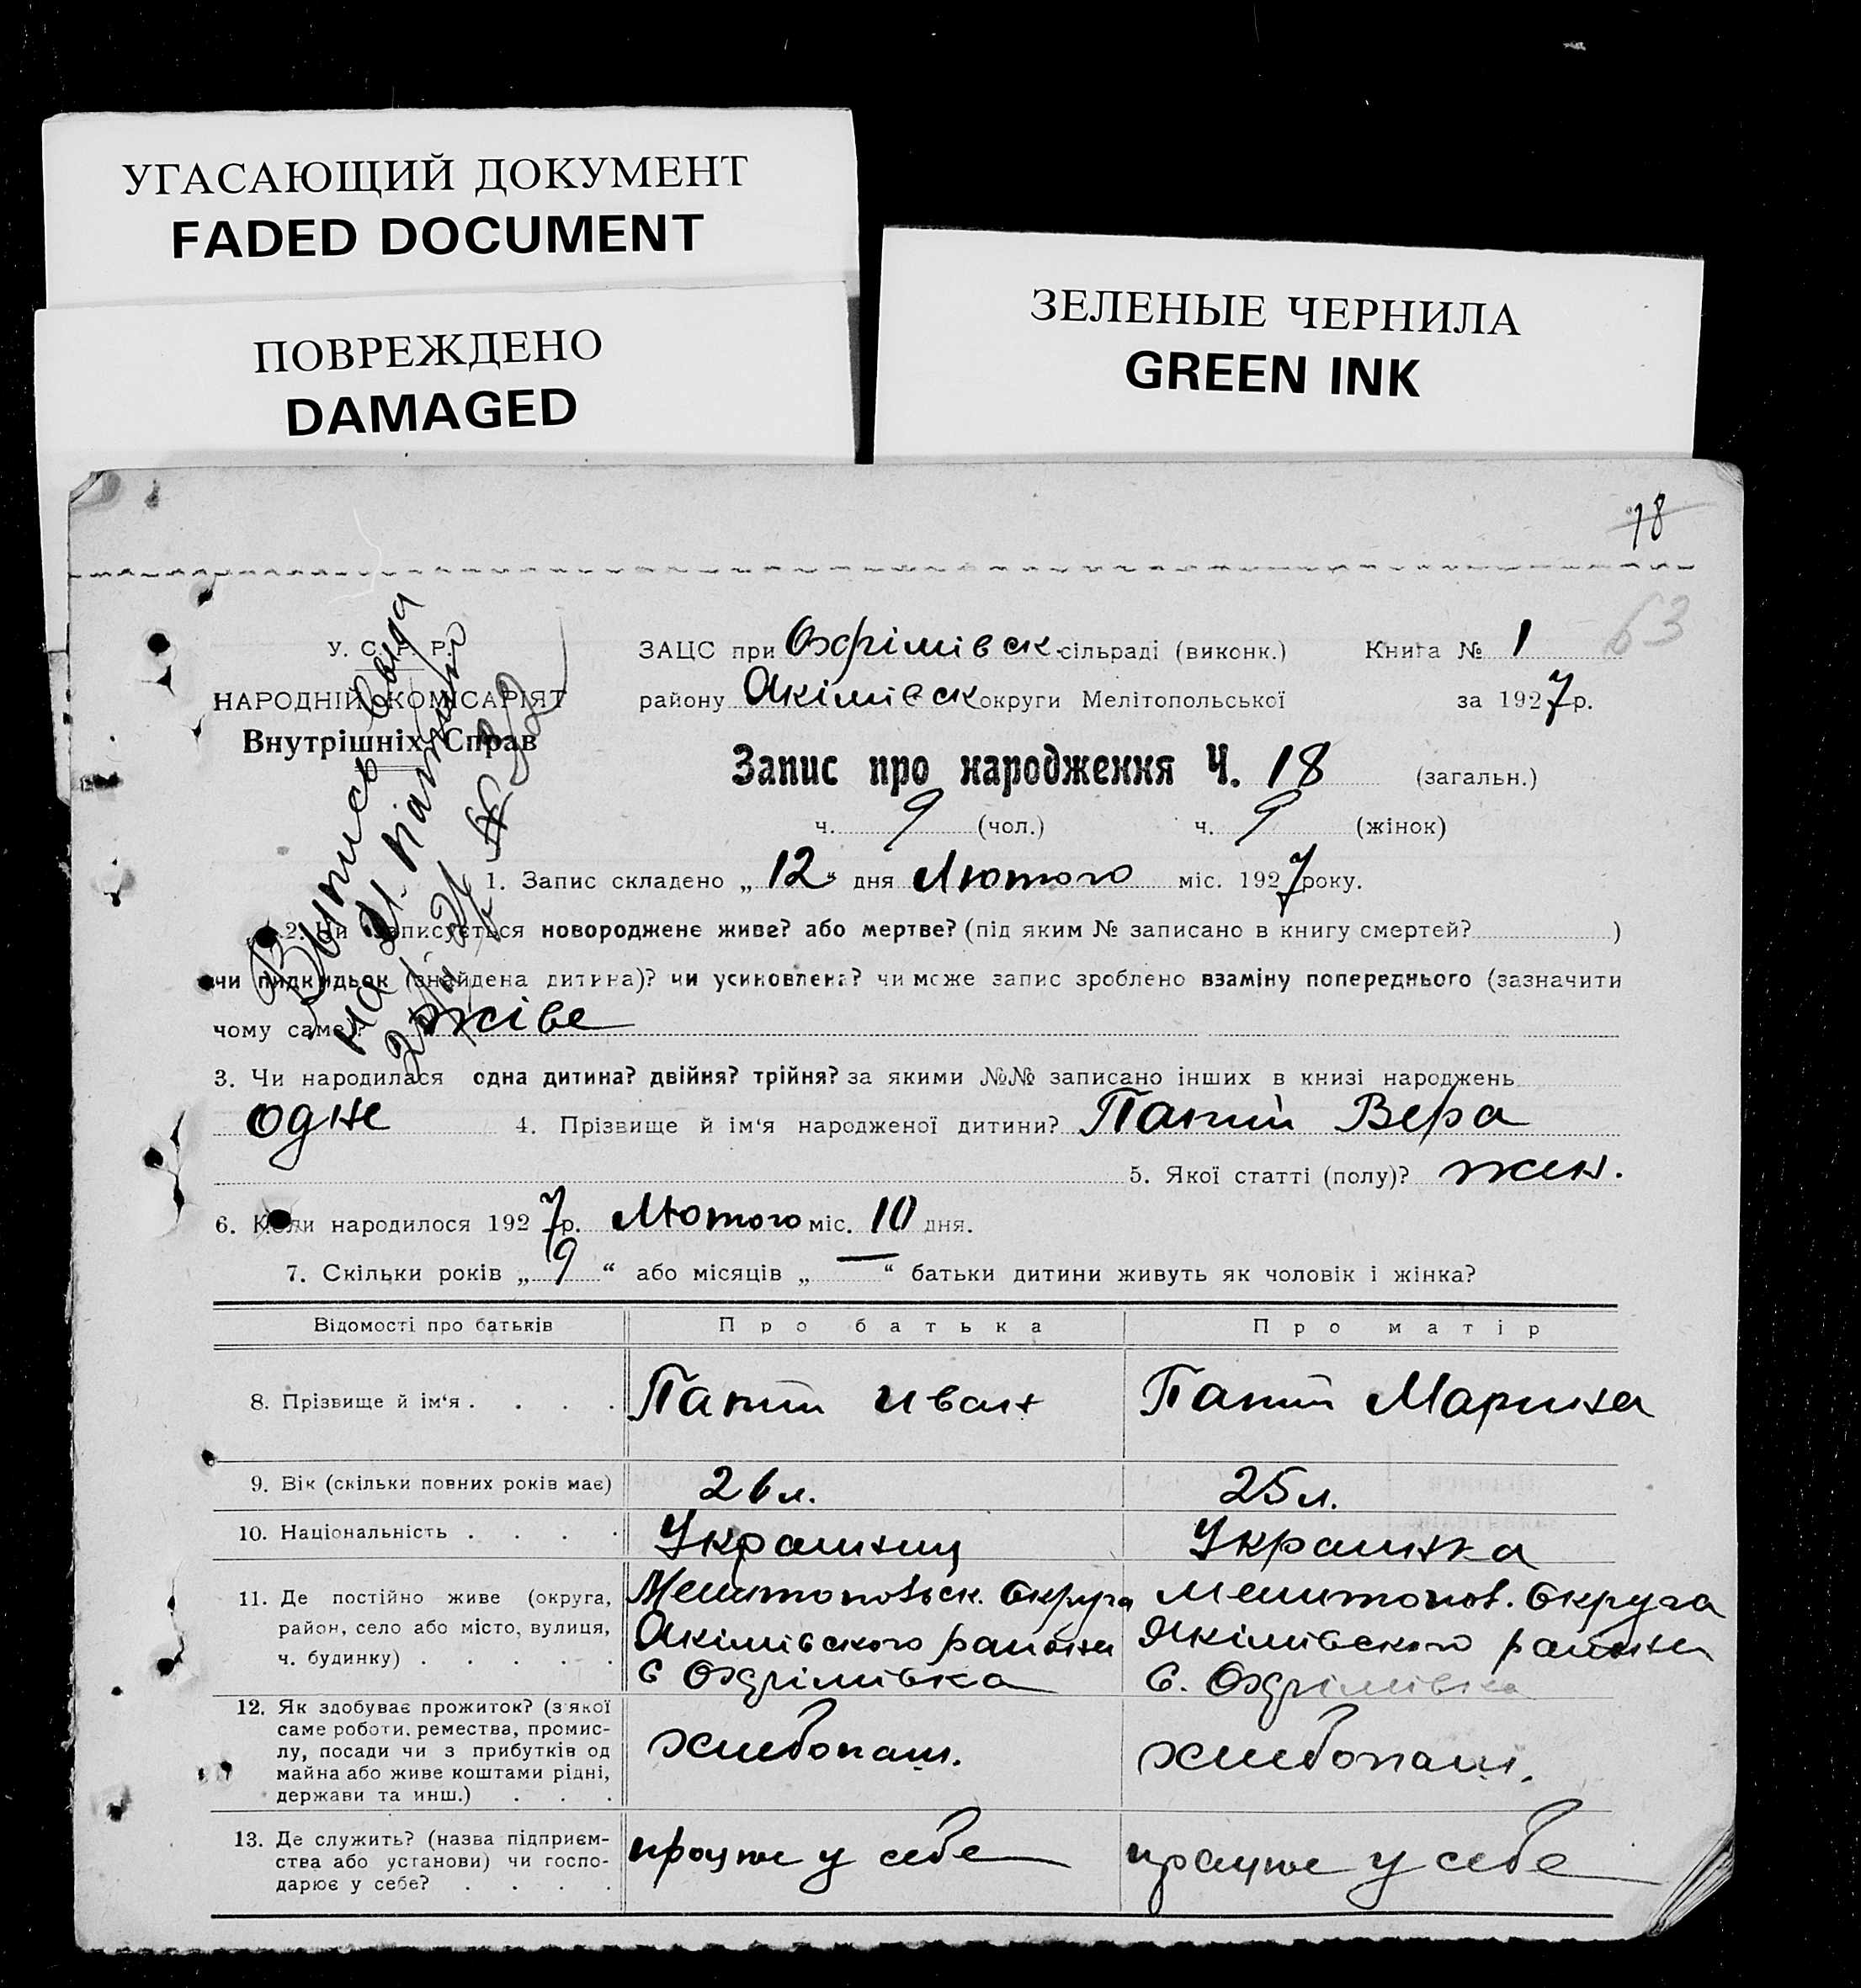 УГАСАЮЩИЙ ДОКУМЕНТ
FADED DOCUMENT
ПОВРЕЖДЕНО
DAMAGED
ЗЕЛЕНЫЕ ЧЕРНИЛА
GREEN INK
18
63
У. С. Р. Р.
НАРОДНІЙ КОМІСАРІЯТ
Внутрішніх Справ
Випись видана
ЗАЦС при Охрімівск. сільраді (виконк.) Книга № 1
району Якімівск округи Мелітопольської за 1927 р.
Запис про народження Ч. 18 (загальн.)
ч. 9 (чол.) ч. 9 (жінок)
1. Запис складено „12“ дня Лютого міс. 1927 року.
2. Чи записується новороджене живе? або мертве? (під яким № записано в книгу смертей? )
чи підкидьок (знайдена дитина)? чи усиновлена? чи може запис зроблено взаміну попереднього (зазначити
чому саме)? живе
3. Чи народилася одна дитина? двійня? трійня? за якими №№ записано інших в книзі народжень
одне 4. Прізвище й ім‘я народженої дитини? Папій Вера
5. Якої статті (полу)? жен.
6. Коли народилося 1927 р. Лютого міс. 10 дня.
7. Скільки років „9“ або місяців „—“ батьки дитини живуть як чоловік і жінка?
Відомості про батьків Про батька Про матір
8. Прізвище й ім‘я . . . . Иван Марина
9. Вік (скільки повних років має) 26 л. 25 л.
10. Національність . . . . Украинец Украинка
11. Де постійно живе (округа, Мелитопольск. округа Мелитопол. округа
район, село або місто, вулиця, Якімівского района Якімівского района
ч. будинку) . . . . . с Охрімівка с. Охрімівка
12. Як здобуває прожиток? (з якої
саме роботи, ремества, промис-
лу, посади чи з прибутків од хлебопаш. хлебопаш.
майна або живе коштами рідні,
держави та инш.) . . .
13. Де служить? (назва підприєм-
ства або установи) чи госпо- працює у себе працює у себе
дарює у себе? . . . .